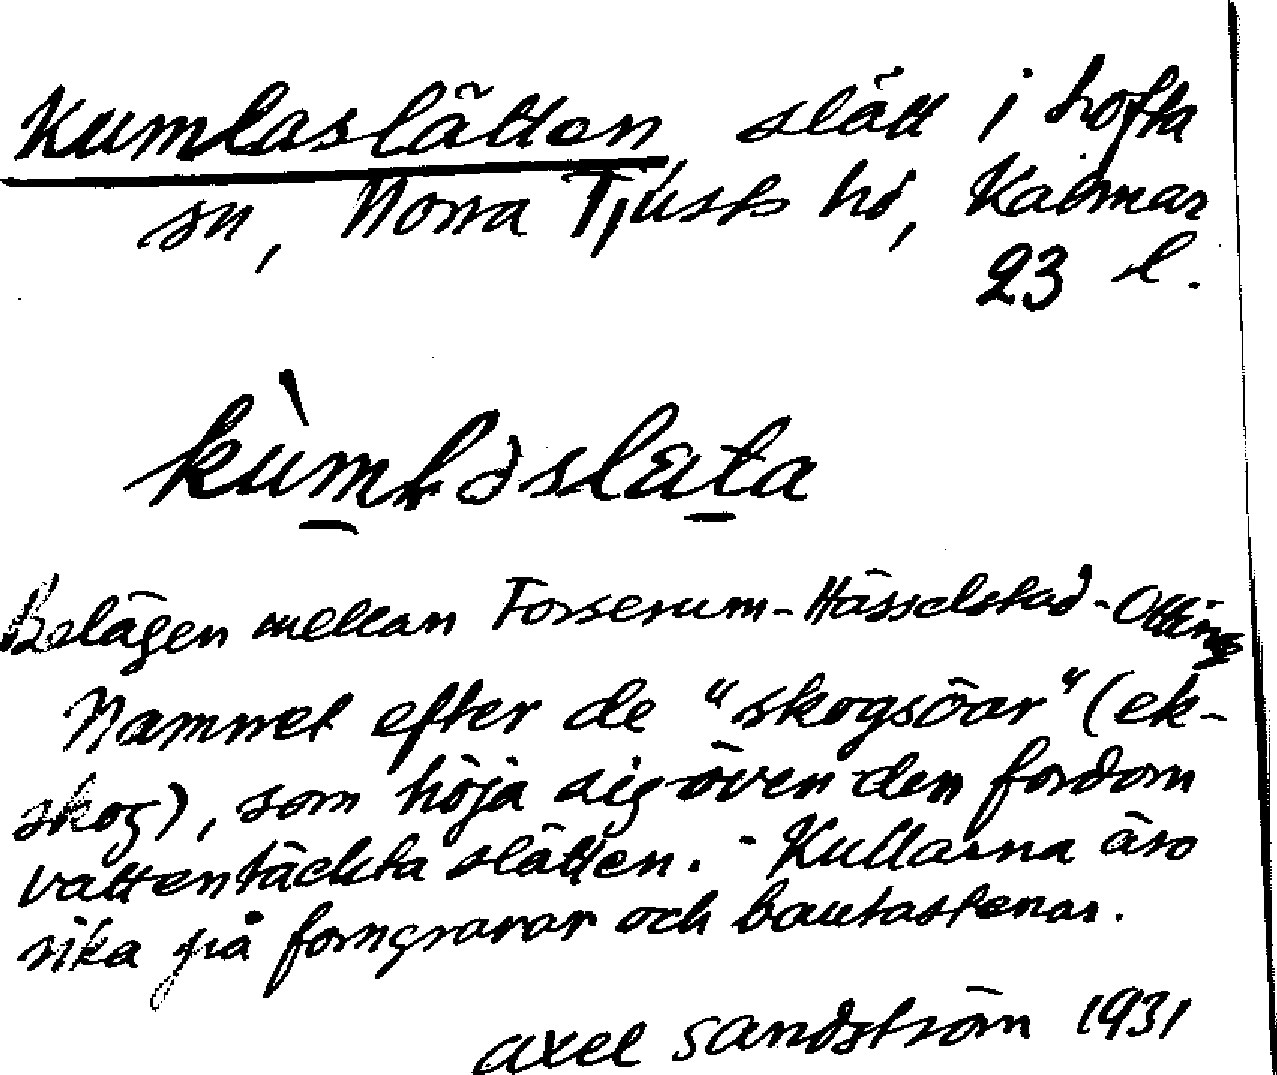 Kumlaslätten slätt i Lofta
sn, Norra Tjusts hd, Kalmar
23 l.
kùmlɔslæta
Belägen mellan Forserum-Hässelstad-Olling
Namnet efter de "skogsöar" (ek-
skog), som höja sig över den fordom
vattentäckta slätten. - Kullarna äro
rika på forngravar och bautastenar.
Axel Sandström 1931